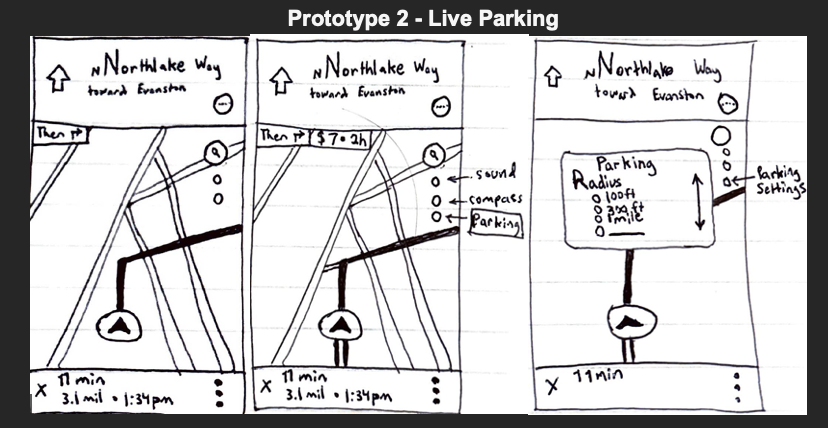 Prototype 2 - Live Parking
N Northlake Way
toward Evanston
Then
X 11 min
3.1 mil • 1:34pm
N Northlake Way
toward Evanston
Then $7 • 2h
sound
compass
Parking
X 11 min
3.1 mil • 1:34pm
N Northlake Way
toward Evanston
Parking
Radius
100ft
300ft
1 mile
Parking
Settings
X 11 min